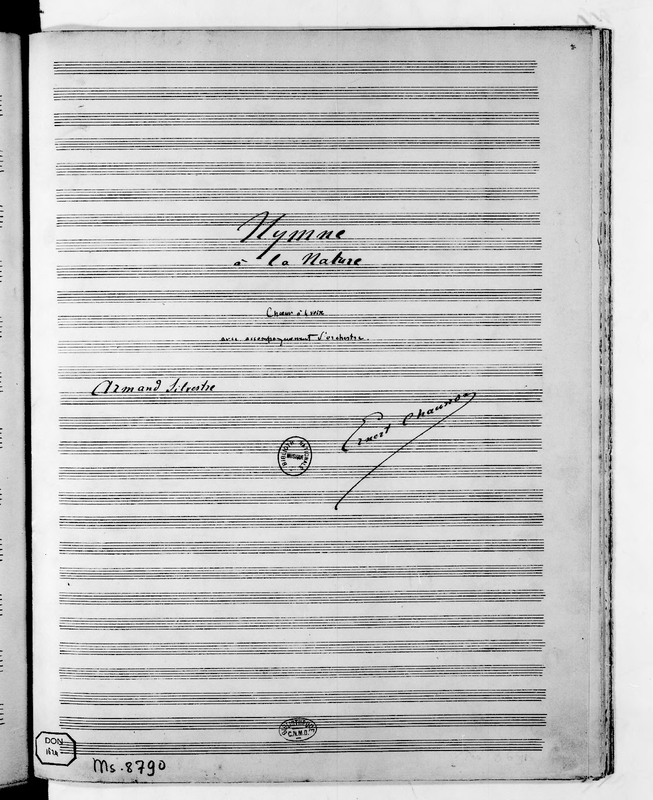 Hymne
à la Nature
Chœur à 4 voix
avec accompagnement d'orchestre.
Armand Silvestre
Ernest Chausson
BIBLIOTH. NATIONALE
MUSIQUE
BIBLIOTHEQUE
C.N.M.D.
DON
Ms. 8790